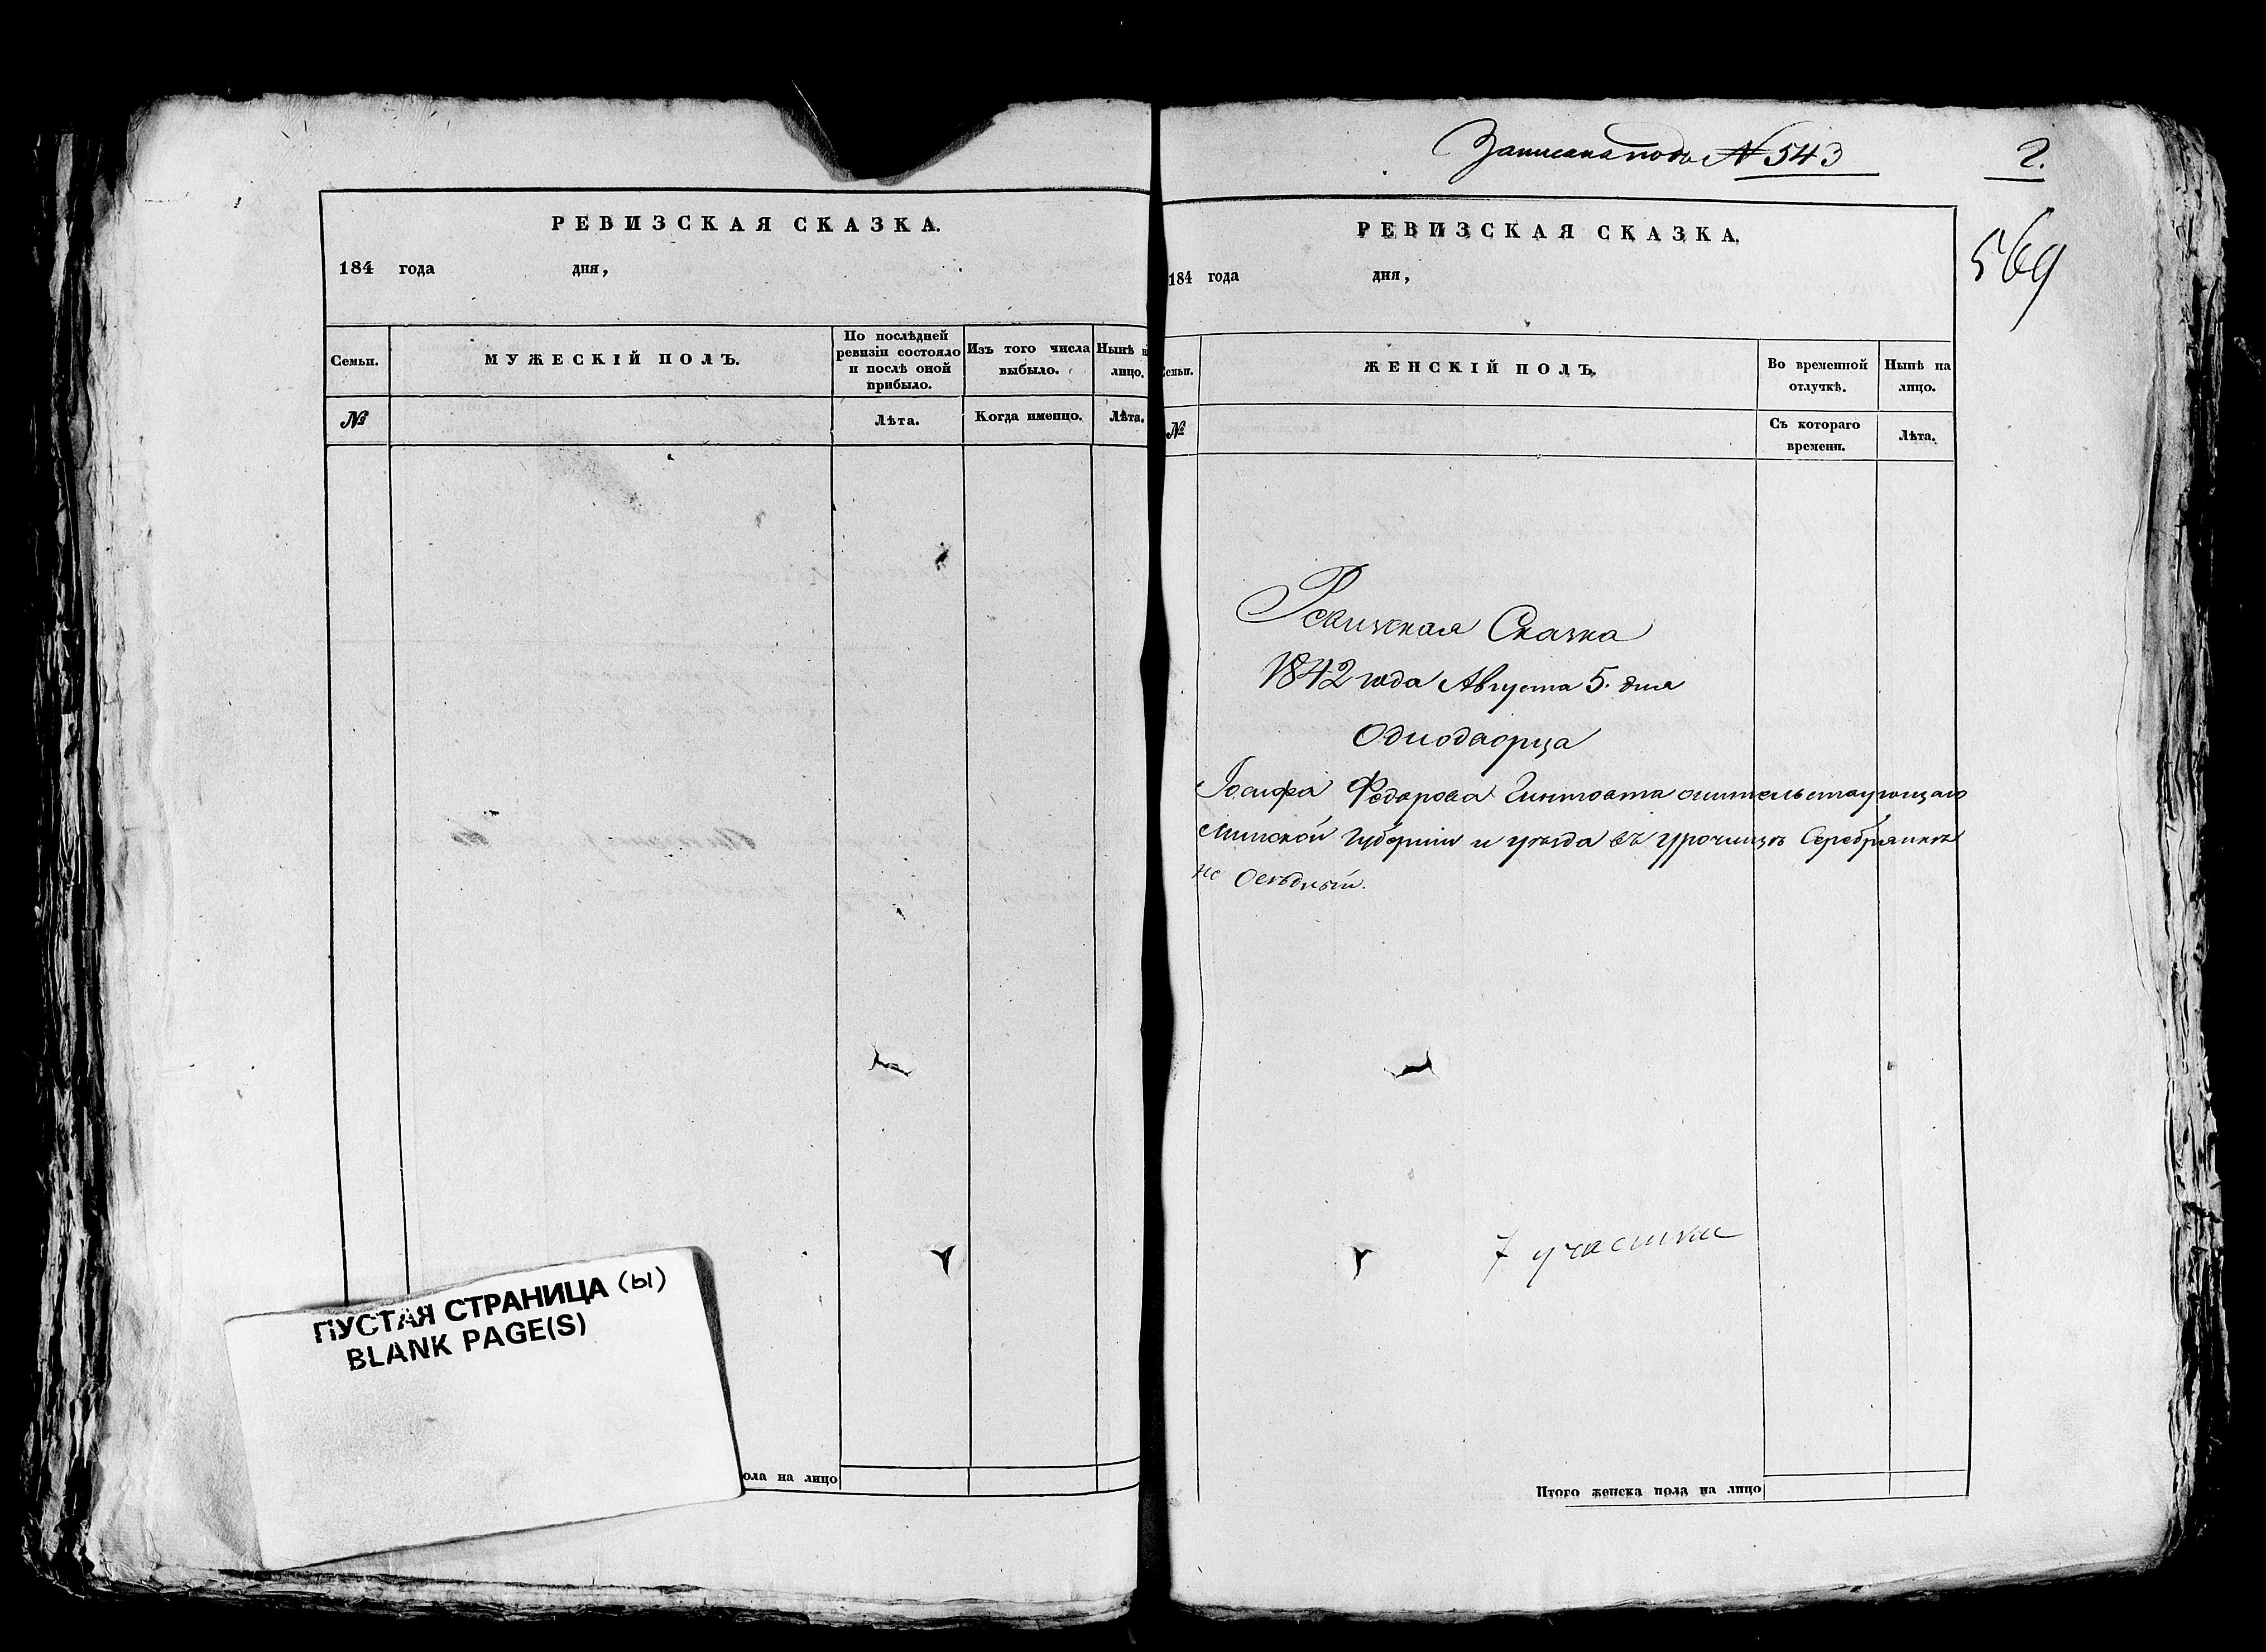 РЕВИЗСКАЯ СКАЗКА.
184 года дня,
Семьи.
МУЖЕСКІЙ ПОЛЪ.
По послѣдней
ревизіи состояло
и послѣ оной
прибыло.
Изъ того числа
выбыло.
Нынѣ н
лицо.
№
Лѣта.
Когда именно.
Лѣта.
ПУСТАЯ СТРАНИЦА (Ы)
BLANK PAGE(S)
ола на лицо
Записана подъ № 543
2.
569
РЕВИЗСКАЯ СКАЗКА.
184 года дня,
Семьи.
ЖЕНСКІЙ ПОЛЪ.
Во временной
отлучкѣ.
Нынѣ на
лицо.
№
Съ котораго
времени.
Лѣта.
Ревизская Сказка
1842 года Августа 5. дня
Однодворца
Іосифа Федорова Гинтовта жительствующаго
Минской Губерніи и уѣзда въ урочищѣ Серебрянкѣ
не Осѣдлый.
7 участка
Итого женска пола на лицо